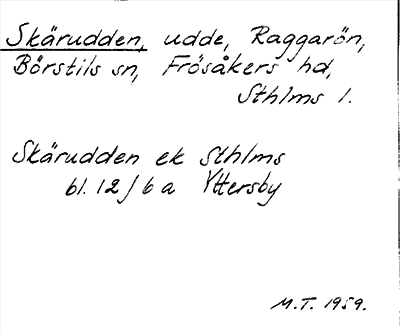 Skärudden, udde, Raggarön,
Börstils sn, Frösåkers hd,
Sthlms l.
Skärudden ek Sthlms
bl. 12/6a Yttersby
M.T. 1959.